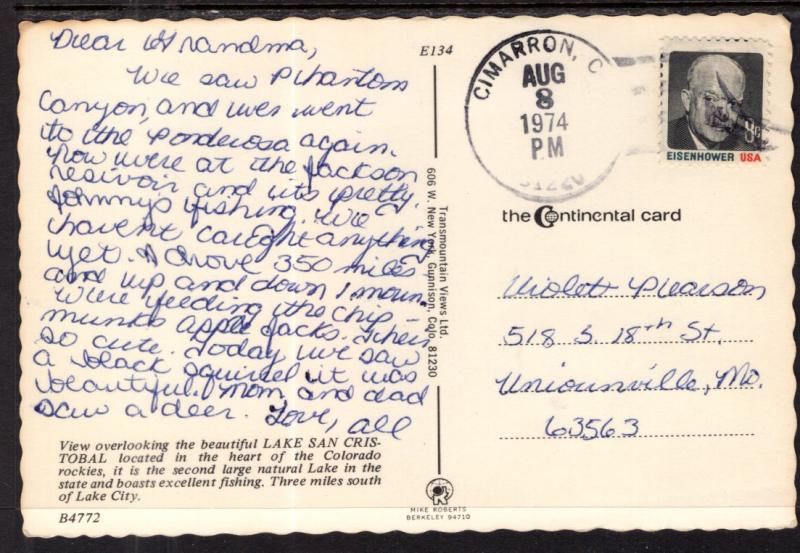 Dear Grandma,
We saw Phantom
Canyon, and wes went
to the Ponderosa again.
Now were at the Jackson
resivoir and its pretty.
Johnnys fishing. We
havent caught anything
yet. I drove 350 miles
and up and down 1 moun.
Were feeding the chip-
munks apple Jacks. Their
so cute. Today we saw
a black squirrel it was
beautiful. Mom and dad
saw a deer. Love, all
View overlooking the beautiful LAKE SAN CRIS-
TOBAL located in the heart of the Colorado
rockies, it is the second large natural Lake in the
state and boasts excellent fishing. Three miles south
of Lake City.
B4772
E134
Transmountain Views Ltd.
606 W. New York, Gunnison, Colo. 81230
MIKE ROBERTS
BERKELEY 94710
CIMARRON, C
AUG
8
1974
PM
8c
EISENHOWER USA
the Continental card
Violett Pearson
518 S. 18th St.
Unionville, Mo.
63563